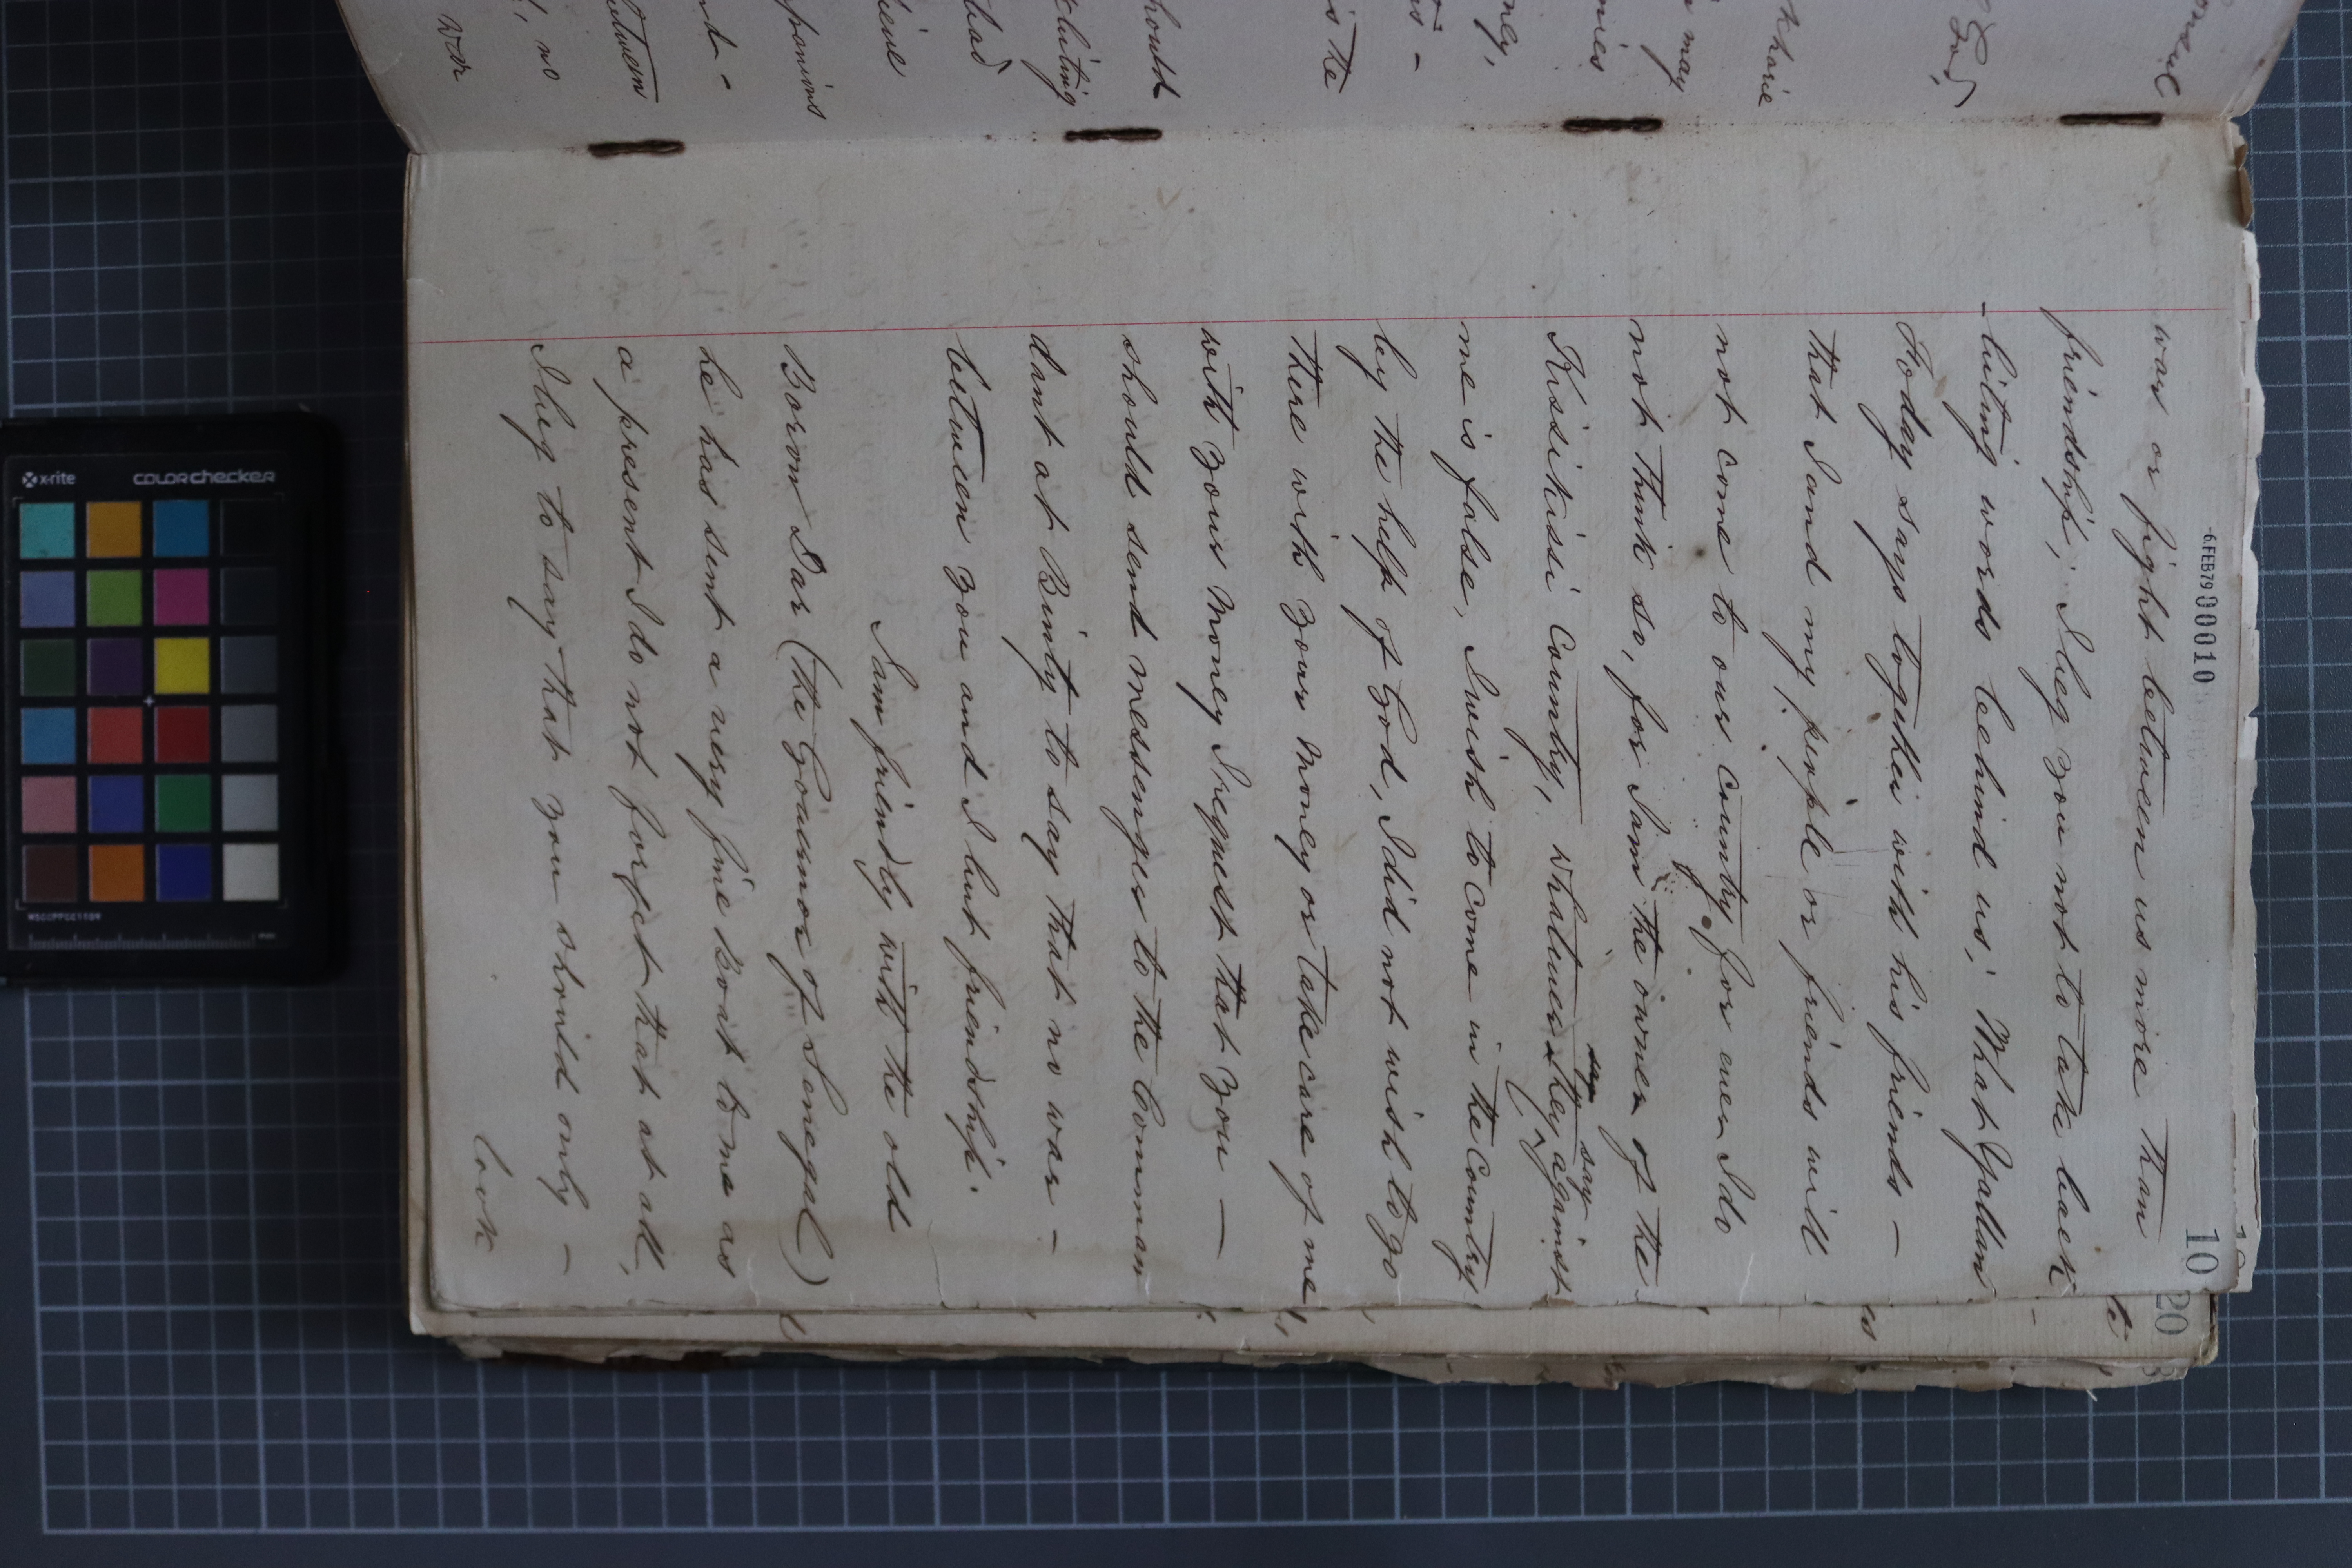 -6.FEB79 000010
10
war or fight between us more than
friendship; I beg you not to take back
-biting words behind us; What Yallan
Foday says together with his friends —
that I and my people or friends will
not come to our country, for ever I do
not think so, for I am the owner of the
Kissikissi Country, whatever they say against
me is false, I wish to come in the Country
by the help of God, I did not wish to go
there with your money or take care of me
with your money I request that you —
should send messenger to the Comman
dant at Binty to say that no war —
between you and I but friendship.
I am friendly with the old
Borom Dar (the Governor of Senegal)
he has sent a very fine Boat to me as
a present I do not forget that at all,
I beg to say that you should only —
look
20
onsul
God,
may
nies
nly,
is the
hould
had
nd -
tween
, no
war
x-rite
colorchecker